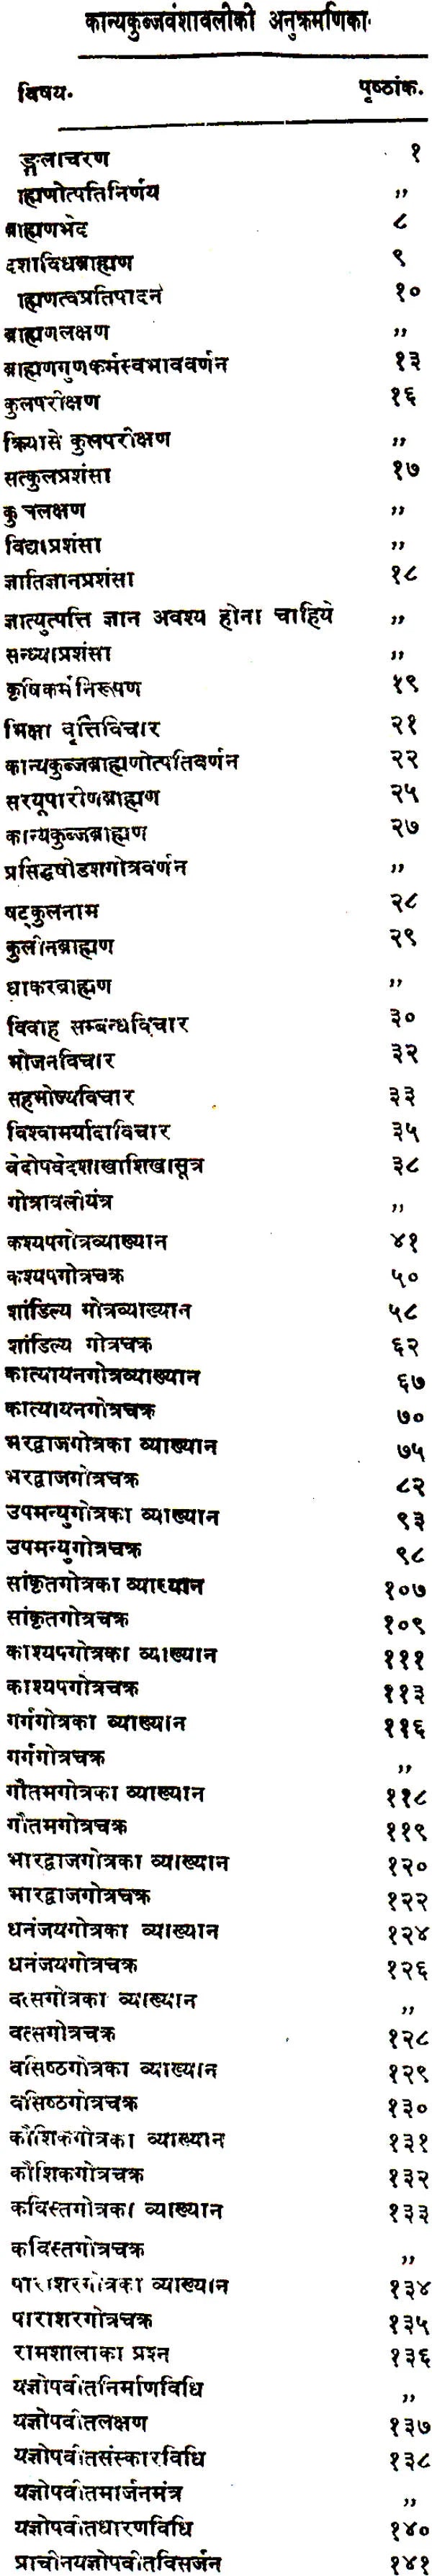 कान्यकुब्जवंशावलीकी अनुक्रमणिका
विषय. पृष्ठांक.
ङ्गलाचरण १
ाह्मणोत्पतिनिर्णय ,,
ब्राह्मणभेद ८
दशविधब्राह्मण ९
ाह्मणत्वप्रतिपादन १०
ब्राह्मणलक्षण ,,
ब्राह्मणगुणकर्मस्वभाववर्णन १३
कुलपरीक्षण १६
क्रियासे कुलपरीक्षण ,,
सत्कुलप्रशंसा १७
कु चलक्षण ,,
विद्याप्रशंसा ,,
ज्ञातिज्ञानप्रशंसा १८
ज्ञात्युत्पत्ति ज्ञान अवश्य होना चाहिये ,,
सन्ध्याप्रशंसा ,,
कृषिकर्मनिरूपण १९
भिक्षा वृत्तिविचार २१
कान्यकुब्जब्राह्मणोत्पतिवर्णन २२
सरयूपारीणब्राह्मण २५
कान्यकुब्जब्राह्मण २७
प्रसिद्धषोडशगोत्रवर्णन ,,
षट्कुलनाम २८
कुलीनब्राह्मण २९
धाकरब्राह्मण ,,
विवाह सम्बन्धविचार ३०
भोजनविचार ३२
सहभोज्यविचार ३३
विश्वामर्यादाविचार ३५
वेदोपवेदशाखाशिखासूत्र ३८
गोत्रावलीयंत्र ,,
कश्यपगोत्रव्याख्यान ४१
कश्यपगोत्रचक्र ५०
शांडिल्य गोत्रव्याख्यान ५८
शांडिल्य गोत्रचक्र ६२
कात्यायनगोत्रव्याख्यान ६७
कात्यायनगोत्रचक्र ७०
भरद्वाजगोत्रका व्याख्यान ७५
भरद्वाजगोत्रचक्र ८२
उपमन्युगोत्रका व्याख्यान ९३
उपमन्युगोत्रचक्र ९८
सांकृतगोत्रका व्याख्यान १०७
सांकृतगोत्रचक्र १०९
काश्यपगोत्रका व्याख्यान १११
काश्यपगोत्रचक्र ११३
गर्गगोत्रका व्याख्यान ११६
गर्गगोत्रचक्र ,,
गौतमगोत्रका व्याख्यान ११८
गौतमगोत्रचक्र ११९
भारद्वाजगोत्रका व्याख्यान १२०
भारद्वाजगोत्रचक्र १२२
धनंजयगोत्रका व्याख्यान १२४
धनंजयगोत्रचक्र १२६
वत्सगोत्रका व्याख्यान ,,
वत्सगोत्रचक्र १२८
वसिष्ठगोत्रका व्याख्यान १२९
वसिष्ठगोत्रचक्र १३०
कौशिकगोत्रका व्याख्यान १३१
कौशिकगोत्रचक्र १३२
कविस्तगोत्रका व्याख्यान १३३
कविस्तगोत्रचक्र ,,
पाराशरगोत्रका व्याख्यान १३४
पाराशरगोत्रचक्र १३५
रामशालाका प्रश्न १३६
यज्ञोपवीतनिर्माणविधि ,,
यज्ञोपवीतलक्षण १३७
यज्ञोपवीतसंस्कारविधि १३८
यज्ञोपवीतमार्जनमंत्र ,,
यज्ञोपवीतधारणविधि १४०
प्राचीनयज्ञोपवीतविसर्जन १४१